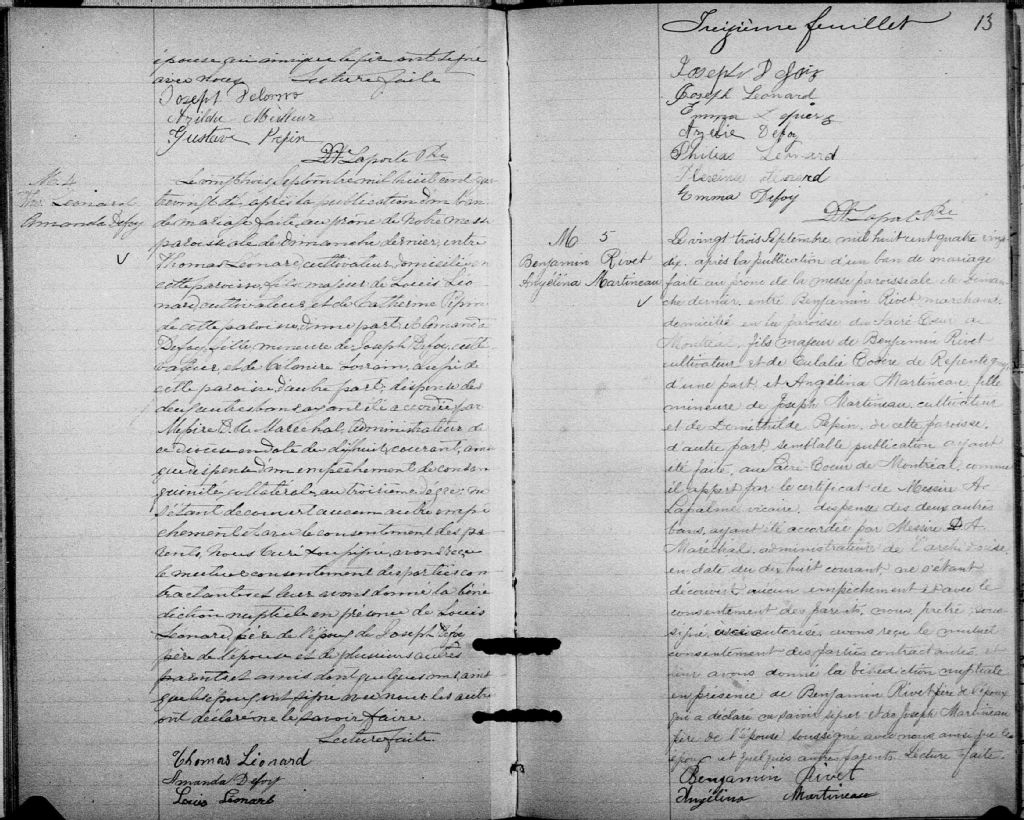 épouse qui ainsi que le père ont signé
avec nous. Lecture faite
Joseph Delorme
Azilda Messier
Gustave Pepin
Laporte Ptre
M. 4
Thos Leonard
Amanda Defoy
Le vingt trois septembre mil huit cent quatre
vingt dix, après la publication d'un ban
de mariage faite au prône de notre messe
paroissiale dimanche dernier, entre
Thomas Léonard, cultivateur, domicilié en
cette paroisse, fils majeur de Louis Léo
nard, cultivateur et de Catherine Pepin
de cette paroisse d'une part, et Amanda
Defoy, fille mineure de Joseph Defoy, culti
vateur, et de
cette paroisse d'autre part; dispense des
deux autres bans ayant été accordée par
Messire Maréchal, Administrateur de
ce diocèse en date du dix huit courant, ainsi
que dispense d'un empêchement de consan
guinité collatérale au troisième degré; ne
s'étant découvert aucun autre empê
chement et avec le consentement des pa
rents, Nous Curé soussigné, avons reçu
le mutuel consentement des parties con
tractantes et leur avons donné la béné
diction nuptiale en présence de Louis
Léonard, père de l'époux, de Joseph Defoy
père de l'épouse et de plusieurs autres
parents et amis dont quelques uns ainsi
que les époux ont signé avec nous les autres
ont déclaré ne le savoir faire.
Lecture faite
Thomas Léonard
Amanda Defoy
Louis Léonard
Treizième feuillet 13
Joseph Defoy
Joseph Leonard
Emma
Azélie Defoy
Philias Léonard
Emma Defoy
Ptre
M 5
Benjamin Rivet
Angélina Martineau
Le vingt trois Septembre mil huit cent quatre vingt
dix, après la publication d'un ban de mariage
faite au prône de la messe paroissiale de diman
che dernier, entre Benjamin Rivet marchand
domicilié en la paroisse du Sacré Cœur de
Montréal, fils majeur de Benjamin Rivet
cultivateur et de Eulalie Coderre de Repentigny
d'une part et Angélina Martineau, fille
mineure de Joseph Martineau, cultivateur
et de Domithilde Pepin, de cette paroisse,
d'autre part semblable publication ayant
été faite, au Sacré Coeur de Montréal, comme
il appert par le certificat de Messire A.
Lapalme vicaire, dispense des deux autres
bans, ayant été accordée par Messire A
Maréchal, administrateur de l'archidiocèse
en date du dix huit courant ne s'étant
découvert aucun empêchement et avec le
consentement des parents, nous, prêtre, sous
signé, autorisé, avons reçu le mutuel
consentement des parties contractantes et
leur avons donné la bénédiction nuptiale
en présence de Benjamin Rivet père de l'époux
qui a déclaré ne savoir signer et de Joseph Martineau
père de l'épouse soussigné avec nous ainsi que les
époux et quelques autres parents. Lecture faite
Benjamin Rivet
Angélina Martineau